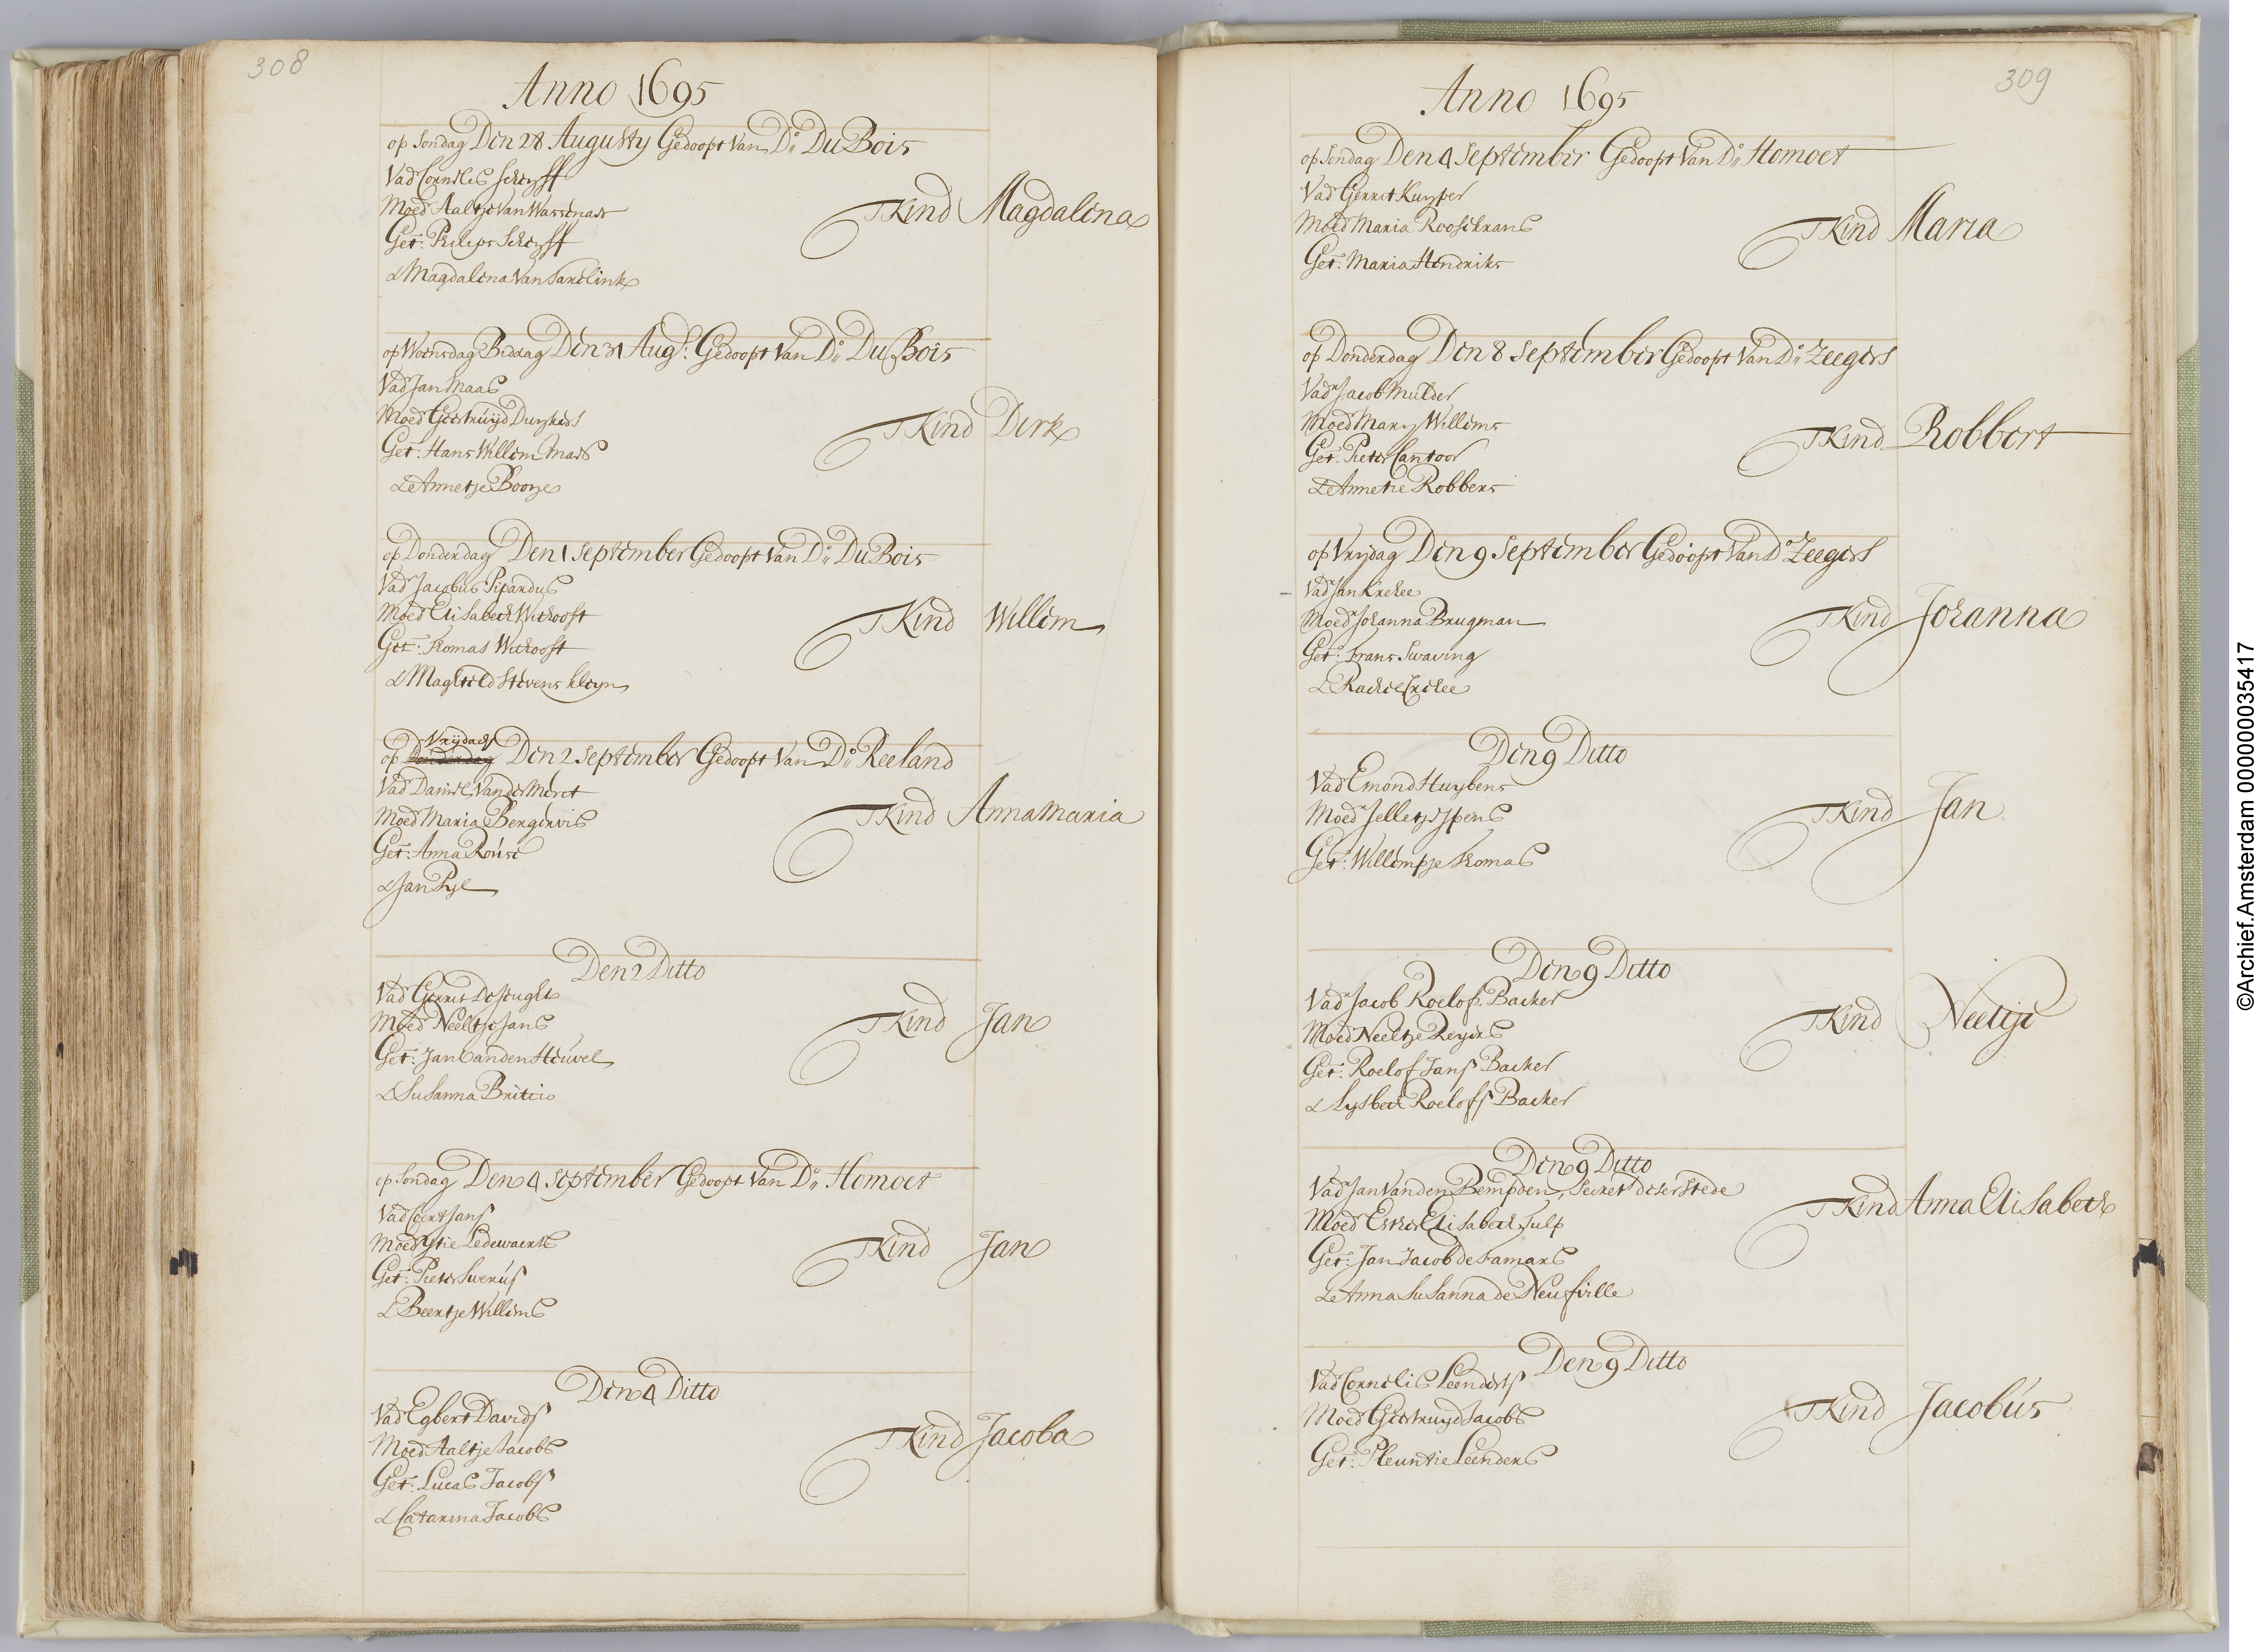 308
Anno 1695
op Sondag Den 28 Augusty Gedoopt Van Dº DuBois
Vad Cornelis Scheyff
Moed Aaltje Van Wassenaer
Get: Philips Scheyff
& Magdalena Van
TKind Magdalena
op Woensdag Biddag Den 31 Augs: Gedoopt Van Dº DuBois
Vad Jan Maas
Moed Geertruyd
Get: Hans Willem Maes
& Annetje Boonje
TKind Dirk
op Donderdag Den 1 September Gedoopt Van Dº DuBois
Vad Jacobus Picardus
Moed Elisabeth Withooft
Get: Thomas Withooft
& Maghteld Stevens kleyn
TKind Willem
op Vrijdagh Donderdag Den 2 September Gedoopt Van Dº Reeland
Vad Daniel Van der Meret
Moed Maria Bergervis
Get: Anna Rouse
& Jan Pyl
TKind Anna Maria
Den 2 Ditto
Vad Gerrit De Jenght
Moed Neeltje Jans
Get: Jan Vanden Heuvel
& Susanna Britcio
TKind Jan
op Sondag Den 4 September Gedoopt Van Dº Homoet
Vad Coert Jans
Moed Ytie Ledewaerts
Get: Pieter Swerus
& Beertje Willems
TKind Jan
Den 4 Ditto
Vad Egbert Davids
Moed Aaltje Jacobs
Get: Lucas Jacobs
& Catarina Jacobs
TKind Jacoba
309
Anno 1695
op Sondag Den 4 September Gedoopt Van Dº Homoet
Vad Gerrit Kuyper
Moed Maria Roosekrans
Get: Maria Hendriks
TKind Maria
op Donderdag Den 8 September Gedoopt Van Dº Zeegers
Vadr Jacob Mulder
Moed Mary Willems
Get: Pieter Cantoor
& Annetie Robbers
TKind Robbert
op Vrijdag Den 9 September Gedoopt Van Dº Zeegers
Vadr Jan Krehee
Moedr Johanna Brugman
Get: Frans Swaving
& Rachel Krehee
TKind Johanna
Den 9 Ditto
Vad Emond Huybens
Moedr Jelletje Ypens
Get: Willempje Thomas
TKind Jan
Den 9 Ditto
Vadr Jacob Roelofs Backer
Moed Neeltje Reyers
Get: Roelof Jans Backer
& Lysbeth Roelofs Backer
TKind Neeltje
Den 9 Ditto
Vadr Jan Vanden Bempden, Secret deser stede
Moed Ester Elisabeth Tulp
Get: Jan Jacob de Famars
& Anna Susanna de Neufville
TKind Anna Elisabeth
Den 9 Ditto
Vad Cornelis Leenderts
Moed Geertruyd Jacobs
Get: Pleuntie Leenders
TKind Jacobus
©Archief.Amsterdam 000000035417